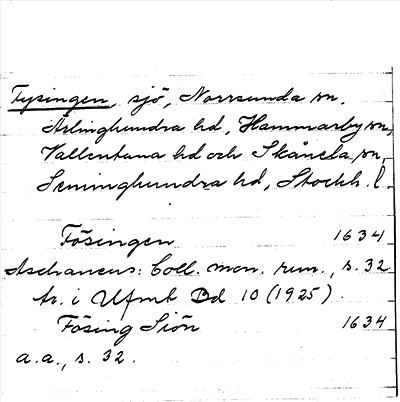 Fysingen, sjö, Norrsunda sn,
Ärlinghundra hd, Hammarby sn,
Vallentuna hd och Skånela sn,
Seminghundra hd, Stockh. l.
Fösingen 1634
Aschaneus: Coll. mon. run., s. 32
tr. i Ufmt Bd 10 (1925).
Fösing Siön 1634
a.a., s. 32.